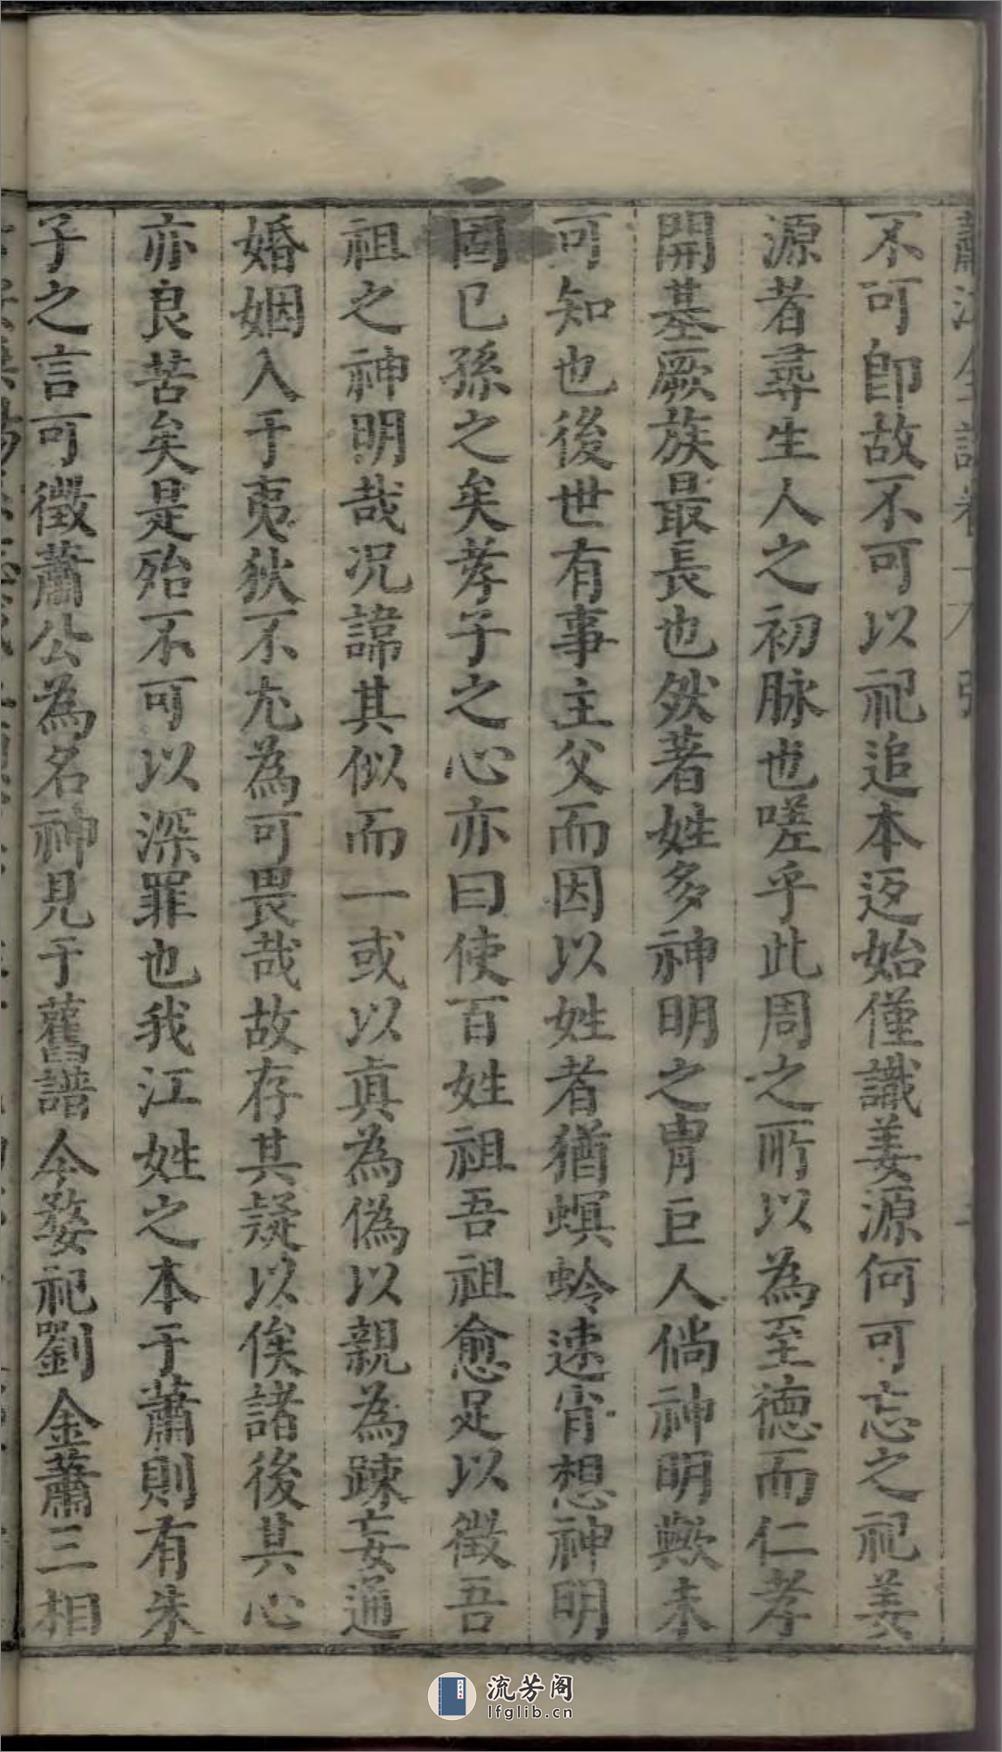 不可卽故不可以祀追本迈始僅識姜源何可忘之祀姜
源者尋生人之初脉也嗟乎此周之所以為至德而仁孝
開基厥族最長也然著姓多神明之胄巨人倘神明歟未
可知也後世有事主父而因以姓者猶螟蛉速肖想神明
固已孫之矣孝子之心亦曰使百姓祖吾祖愈足以徵吾
祖之神明哉况諱其似而一或以眞為偽以親為踈妄通
婚姻入于夷狄不尤為可畏哉故存其疑以俟諸後其心
亦良苦矣是殆不可以深罪也我江姓之本于蕭則有朱
子之言可徵蕭公為名神見于舊譜今婺祀劉金蕭三相
流芳阁
lfglib.cn